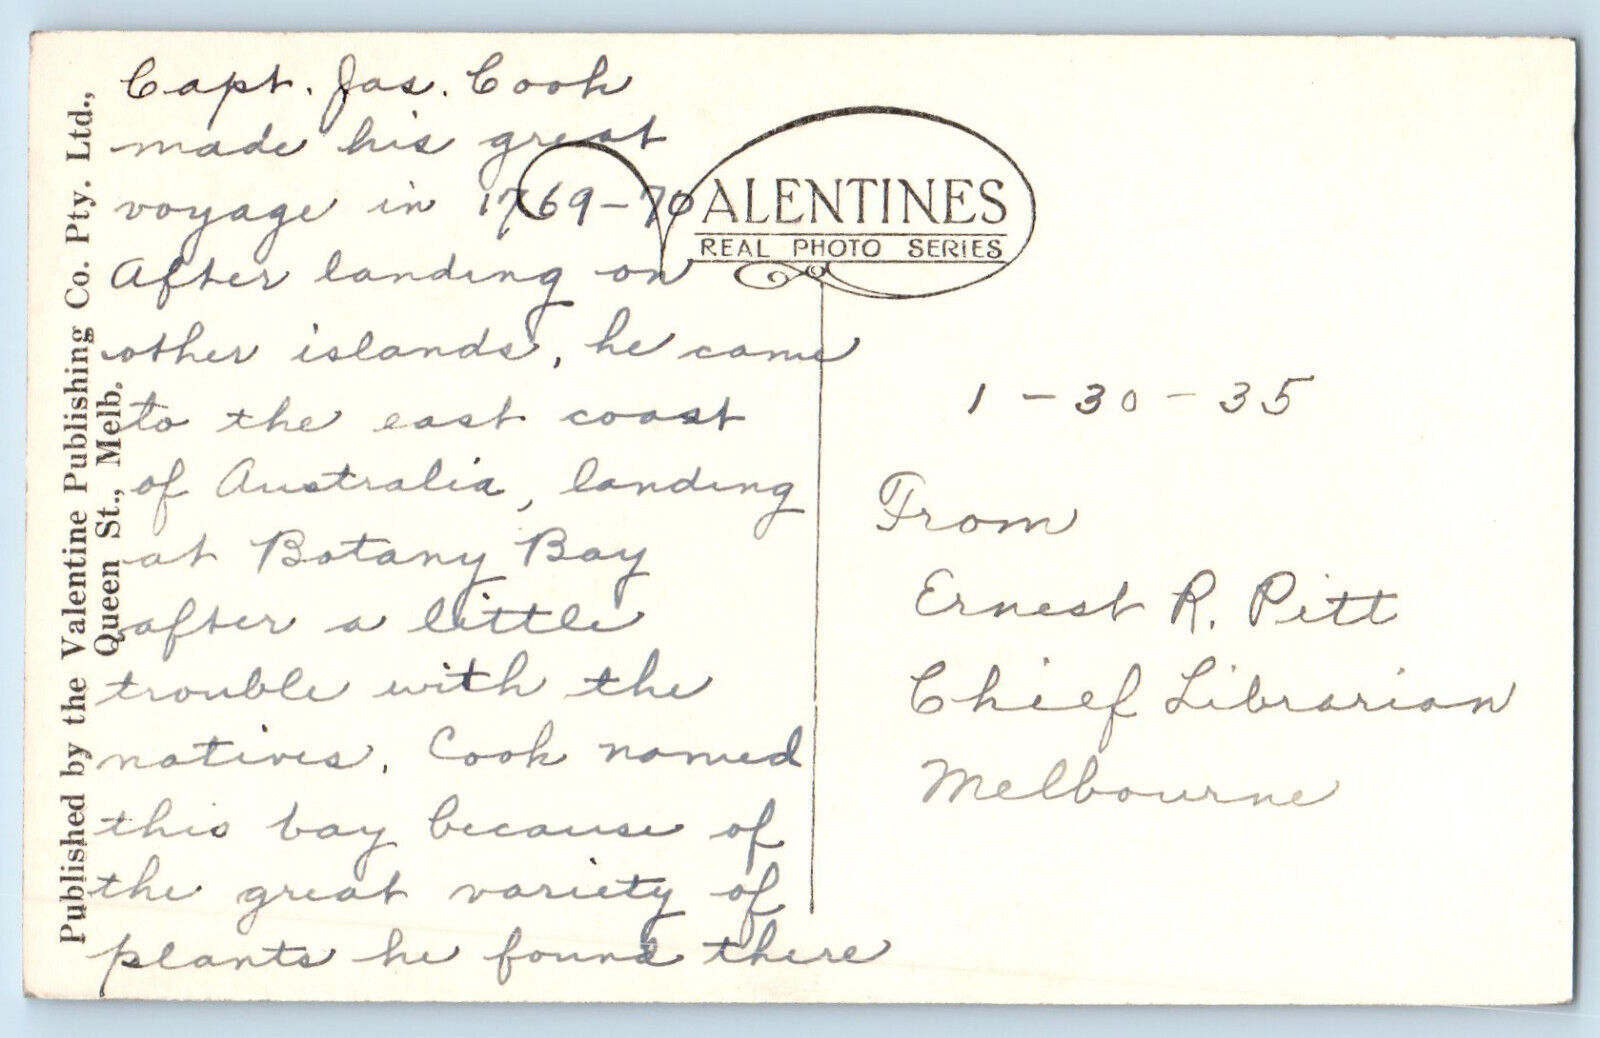 Capt. Jas. Cook
made his great
voyage in 1769-70
After landing on
other islands, he came
to the east coast
of Australia, landing
at Botany Bay
after a little
trouble with the
natives. Cook named
this bay because of
the great variety of
plants he found there
VALENTINES
REAL PHOTO SERIES
1-30-35
From
Ernest R. Pitt
Chief Librarian
Melbourne
Published by the Valentine Publishing Co. Pty. Ltd.,
Queen St., Melb.